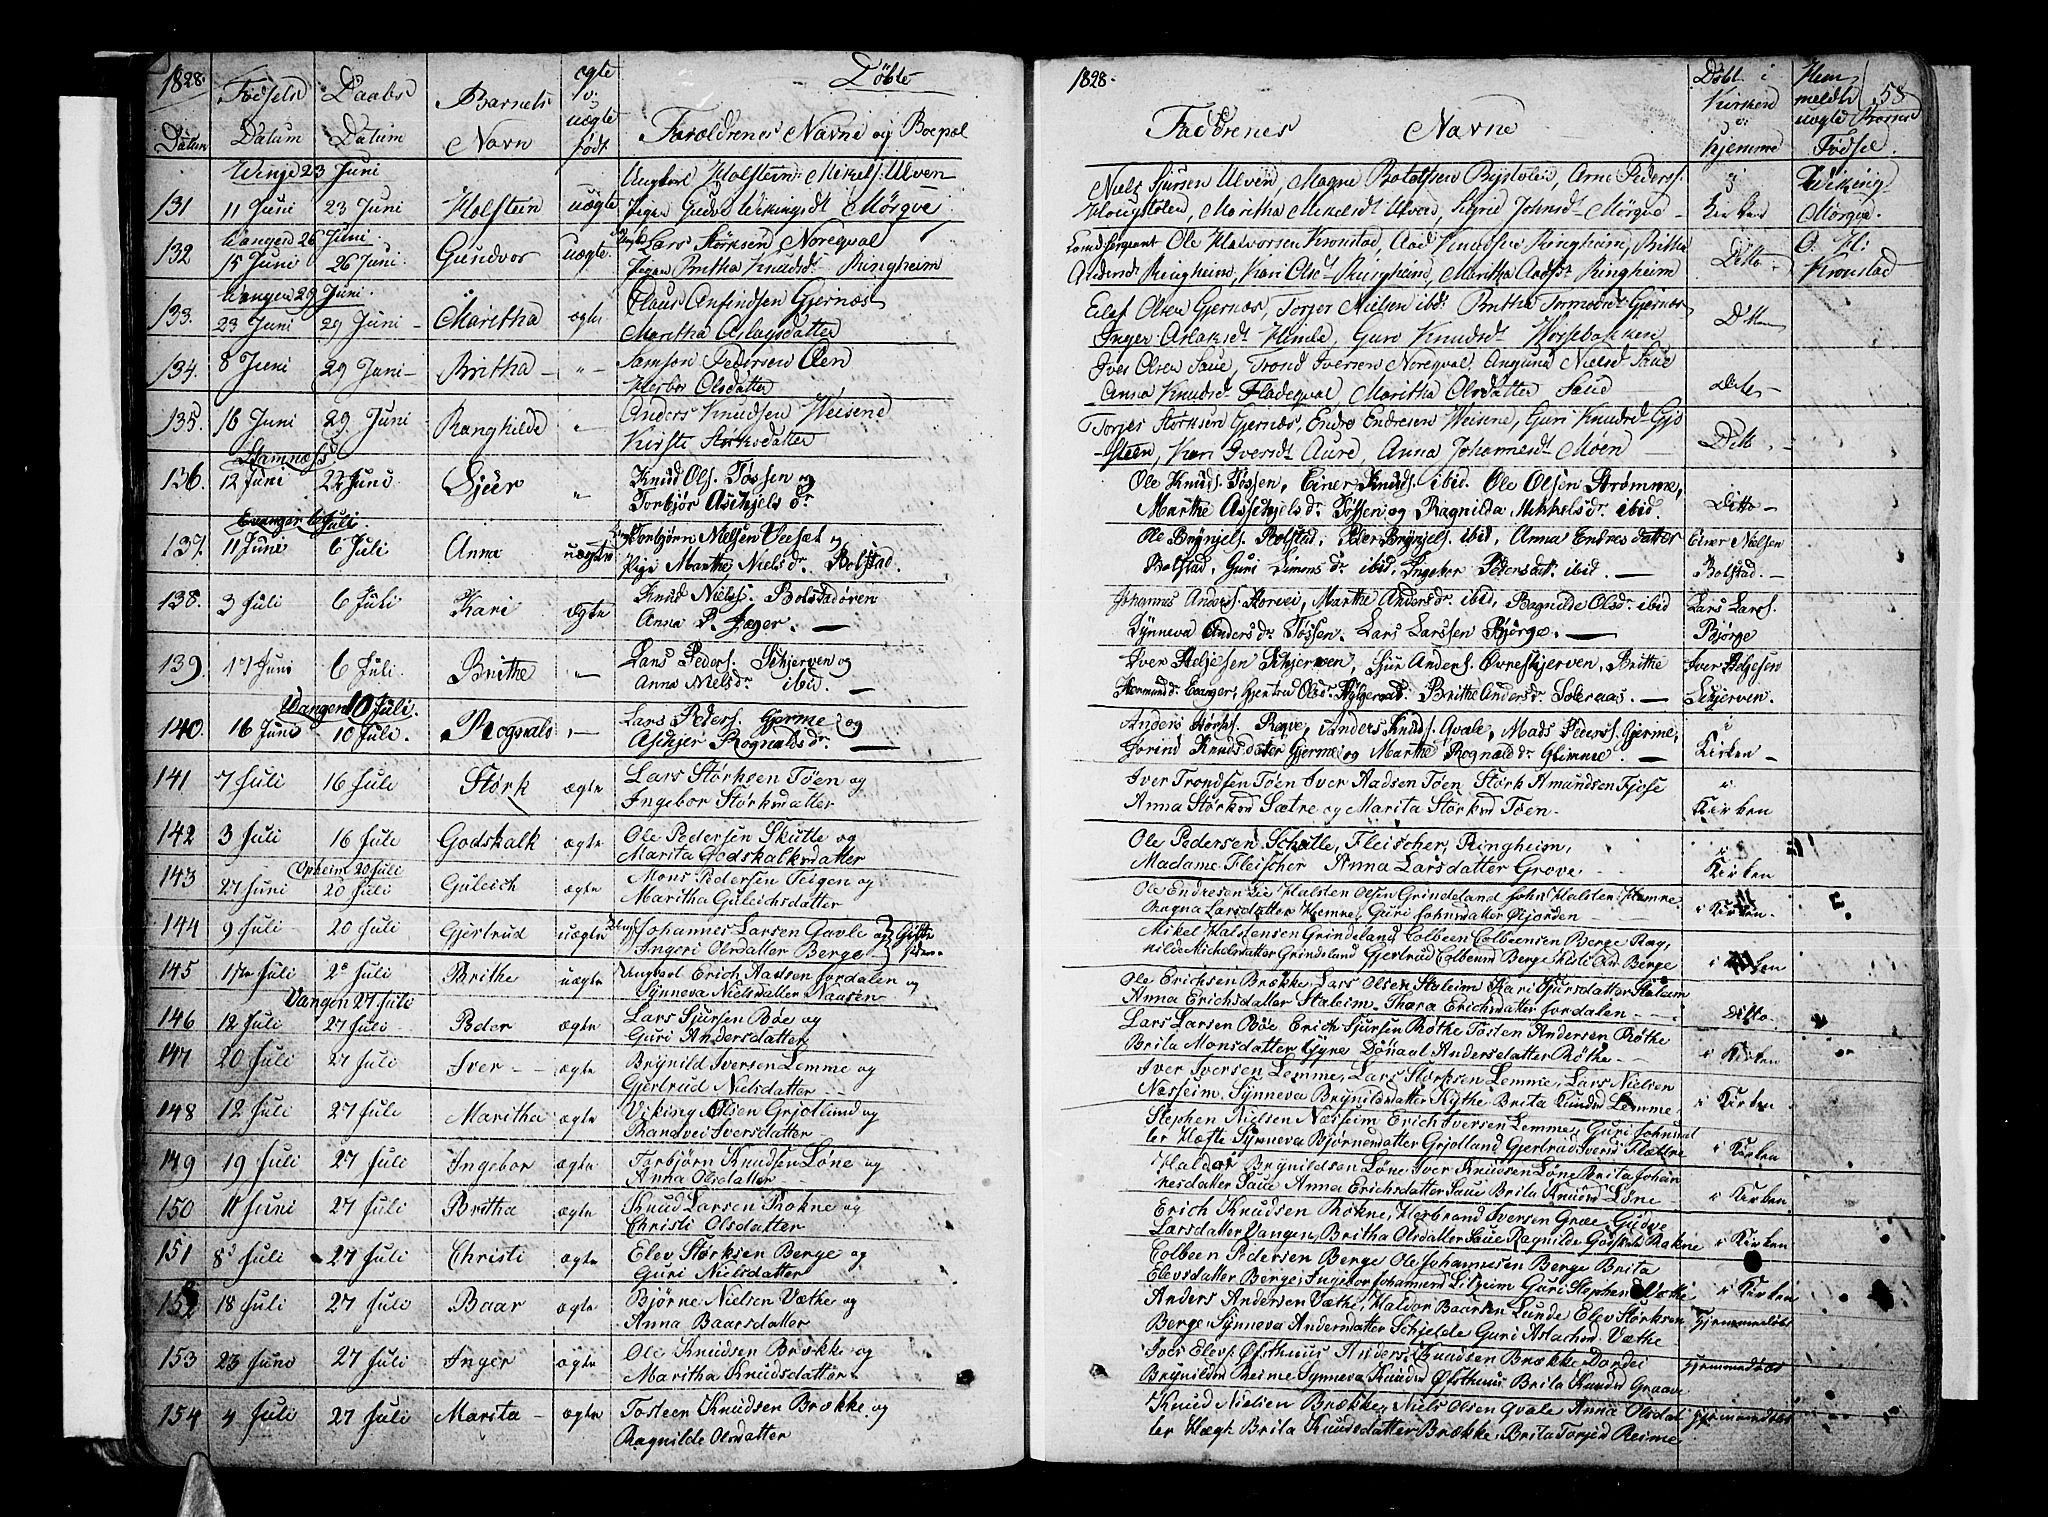 1828.
Døbte
Datum
Fødsels Datum
Daabs Datum
Barnets Navn
ægte ell: uægte født
Forældrenes Navne og Boepæl
Winje 23 Juni
131 11 Juni 23 Juni Holstein uægte Ungkarl Holstein Mikels: Ulven
Pigen Gudve Wikingsdt Mörgve
Wangen 26 Juni.
132 15 Juni 26 Juni. Gundvor uægte Lars Störksen Noreqval
Pigen Britha Knudsdt Ringheim
Wangen 29 Juni.
133. 23 Juni 29 Juni Maritha ægte Claus Anfindsen Gjernæs
Maritha Aslagsdatter
134. 8 Juni 29 Juni Britha " Samson Pedersen Øen
Herbor Olsdatter
135. 16 Juni 29 Juni Ranghilde " Anders Knudsen Weisene
Kirsti Störksdatter
Stamnæss
136. 12 Juni 22 Juni Sjur " Knud Ols. Tössen og
Torbjör Aschjels dr
Evanger 6 Juli.
137. 11 Juni 6 Juli Anna uægte Torbjørn Nielsen Veesæt og
Pige Marthe Niels dr. Bolstad.
138. 3 Juli 6 Juli Kari Ægte Knud Niels. Bolstadøren
Anna P. Jæger.
139 17 Juni 6 Juli. Brithe " Lars Peders. Schjerven og
Anna Niels dr ibid.
Wangen 10 Juli.
140. 16 Juni 10 Juli. Rognald " Lars Peders. Gjerme og
Aschjer Rognalds dr.
141 7 Juli 16 Juli Störk ægte Lars Störksen Töen og
Ingebor Störksdatter
142 3 Juli 16 Juli Godskalk ægte Ole Pedersen Skutle og
Marita Godskalksdatter
Opheim 20 Juli
143 27 Juni 20 Juli Guleich ægte Mons Pedersen Teigen og
Maritha Guleichsdatter
144 9 Juli 20 Juli Gjertrud uægte Johannes Larsen Gavle og
Ingeri Olsdatter Berge
145 17de Juli 20 Juli Brithe uægte Ungkarl Erich Aadsen Jordalen og
Synneva Nielsdatter Naasen
Vangen 27 Juli
146 12 Juli 27 Juli Peder ægte Lars Sjursen Böe og
Guri Andersdatter
147 20 Juli 27 Juli Iver ægte Brynild Iversen Lemme og
Gjertrud Nielsdatter
148 12 Juli 27 Juli Maritha ægte Viking Olsen Grjotland og
Randvei Iversdatter
149 19 Juli 27 Juli Ingebor ægte Torbjörn Knudsen Löne og
Anna Olsdatter
150 11 Juni 27 Juli Britha ægte Knud Larsen Rokne og
Christi Olsdatter
151 8 Juli 27 Juli Christi ægte Elev Störksen Berge og
Guri Nielsdatter
152 18 Juli 27 Juli Baar ægte Bjørne Nielsen Væthe og
Anna Baarsdatter
153 23 Juni 27 Juli Inger ægte Ole Knudsen Brække og
Maritha Knudsdatter
154 4 Juli 27 Juli Marita ægte Tosteen Knudsen Brække og
Ragnilde Olsdatter
1828.
58
Faddrenes Navne
Døbt i Kirken er hjemme
Hiem meldte uægte Børns Födsel
Niels Sjursen Ulven, Magne Botolfsen Bystölen, Arne Peders.
Hougstölen, Maritha Mikelsdt Ulven Sigrid Johnsdt Mörgve
i Kirken
Wiking Mörgve.
Land Sergeant Ole Halvorsen Kronstad, Aad Knudsen Ringheim, Britha
Andersdt Ringheim, Kari Olsdt Ringheim, Maritha Aadsdt Ringheim
Ditto
O. H: Kronstad
Eilef Olsen Gjernæs, Torjer Nielsen ibid Britha Tormodsdt Gjernæs
Inger Aslaksdt Himle, Guro Knudsdt
Ditto
Iver Olsen Saue, Trond Iversen Noreqval, Amund Nielsen Saue
Anna Knudsdt Fladeqval Maritha Olsdatter Saue
Ditto
Torjes Störksen Gjernæs, Endre Endresen Weisene, Guri Knudsdt Gjo
steen, Kari Iversdt Aure, Anna Johannesdt Möen
Ditto
Ole Knuds. Tössen, Einer Knuds. ibid. Ole Olsen Strømme,
Marthe Aschjels dr. Tössen og Ragnilda Mikkels dr. ibid.
Ditto
Ole Brynjels. Bolstad, Peder Brynjels. ibid, Anna Endres datter
Bolstad, Guri Simons dr. ibid, Ingebor Pedersdat. ibid.
Einer Nielsen Bolstad.
Johannes Anders. Horvei, Marthe Anders dr. ibid, Ragnilde Ols dr. ibid
Synneva Anders dr. Tössen. Lars Larssen Bjørge.
Lars Lars. Bjørge
Iver Heljesen Schjerven, Sjur Anders. Øvreschjerven, Brithe
Evanger, Gjertrud Ols dr. Brithe Anders dr.
Iver Heljesen Schjerven.
Anders Störks. Rqve, Anders Knuds. Qvale, Mads Peders. Gjerme,
Jorend Knudsdater Gjerme og Marthe Rognalds dr. Glimme.
i Kirken
Iver Trondsen Töen Iver Aadsen Töen Störk Amundsen Fjose
Anna Störksd Sætre og Marita Störksd Töen.
i Kirken
Ole Pedersen Schutle, Fleischer, Ringheim,
Madame Fleischer Anna Larsdatter Grove
i Kirken
Ole Endresen Lie Halsten Olsen Grindeland John Halsten Hemne
Ragna Larsdatter Hemne, Guri Johnsdatter Øjorden
i Kirken
Mikel Halstensen Grindeland Colbeen Colbeensen Berge Rag-
nilde Michelsdatter Grindeland Gjertrud Colbeensd Berge
i Kirken
Ole Erichsen Brække, Lars Olsen Staleim Kari Sjursdatter Staleim
Anna Erichsdatter Staleim Thara Erichsdatter Jordalen
ditto
Lars Larsen Böe Erich Sjursen Röthe Tosten Andersen Röthe
Brita Monsdatter Gjyre Dönaal Andersdatter Röthe
i Kirken
Iver Iversen Lemme, Lars Störksen Lemme, Lars Nielsen
Næsheim, Synneva Brynildsdatter Kythe Brita Knudsd Lemme
i Kirken
Stephen Nielsen Næsheim Erich Iversen Lemme, Guri Johnsdat
ter Hæfte Synneva Bjørnesdatter Grjotland Gjertrud Iversd Flættre
i Kirken
Haldor Brynildsen Löne Iver Knudsen Löne Brita Johan
nesdatter Saue Anna Erichsdatter Saue Brita Knudsd Löne
i Kirken
Erich Knudsen Rokne, Herbrand Iversen Græe, Gudve
Larsdatter Vangen, Britha Olsdatter Saue Ragnilde Godskalksd Rokne
i Kirken
Colbeen Pedersen Berge Ole Johannesen Berge Brita
Elevsdatter Berge, Ingebor Johannesd Guri Stephensd Væthe
i Kirken
Anders Andersen Væthe, Haldor Baarsen Lunde Elev Störksen
Berge Synneva Andersdatter Schjelde Guri Aslachsd Væthe
Hjemmedöbt
Iver Elevs. Østhuus Anders Knudsen Brække Dordei
Brynildsd Reime Synneva Knudsd Østhuus Brita Knudsd Graave
Hjemmedöbt
Knud Nielsen Brække, Niels Olsen Qvale Anna Olsdat
ter Hægt. Brita Knudsdatter Brække, Brita Torjersd Reime,
Hjemmedöbt